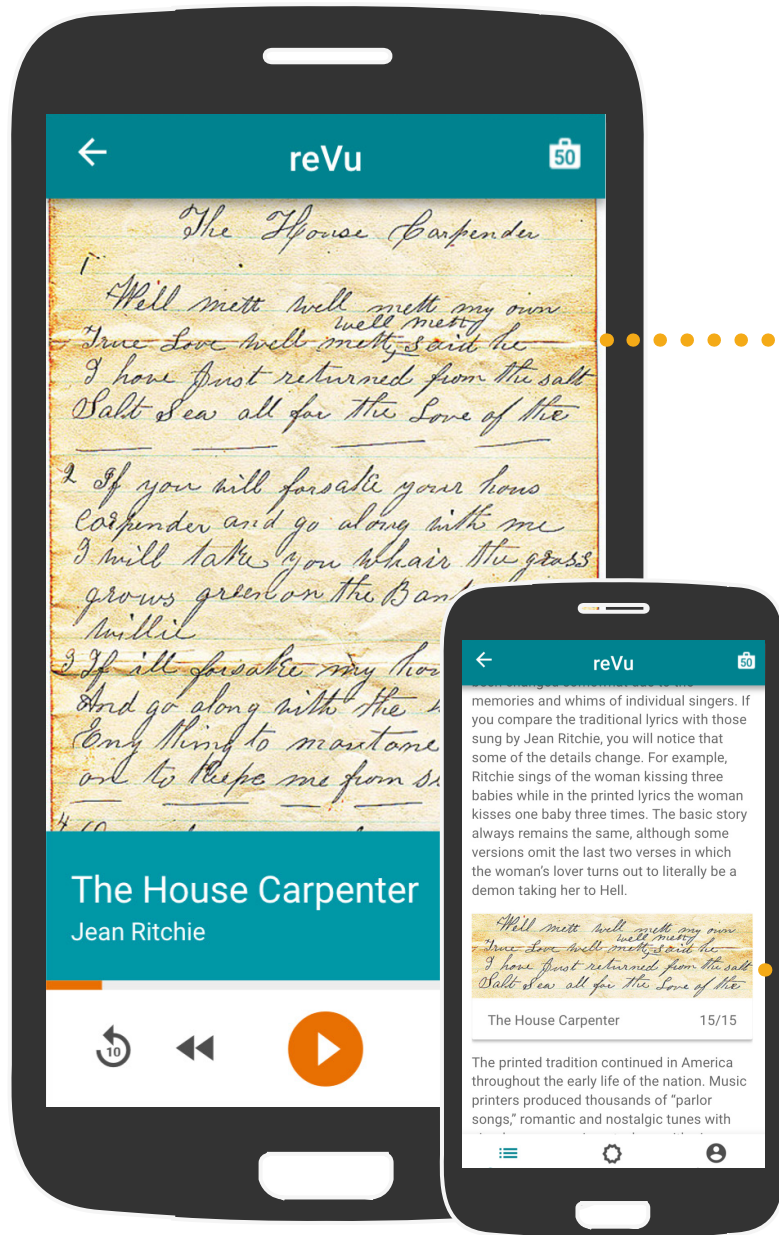 reVu
50
The House Carpender
1
Well mett well mett my own
well mett
True Love well mett, said he
I have Just returned from the salt
Salt Sea all for the Love of the
2 If you will forsake your hous
Carpender and go along with me
I will take you whair the grass
grows green on the Ban
willie
3 If ill forsake my
And go along with the
Eny thing to
on to Keepe me from
4
The House Carpenter
Jean Ritchie
10
reVu
50
memories and whims of individual singers. If
you compare the traditional lyrics with those
sung by Jean Ritchie, you will notice that
some of the details change. For example,
Ritchie sings of the woman kissing three
babies while in the printed lyrics the woman
kisses one baby three times. The basic story
always remains the same, although some
versions omit the last two verses in which
the woman’s lover turns out to literally be a
demon taking her to Hell.
Well mett well mett my own
well mett
True Love well mett, said he
I have Just returned from the salt
Salt Sea all for the Love of the
The House Carpenter 15/15
The printed tradition continued in America
throughout the early life of the nation. Music
printers produced thousands of “parlor
songs,” romantic and nostalgic tunes with